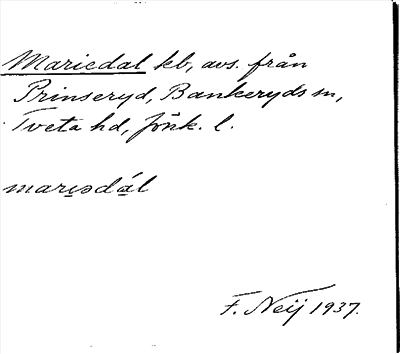 Mariedal kb, avs. från
Prinseryd, Bankeryds sn,
Tveta hd, Jönk. l.
marịədạ́l
F. Neij 1937.